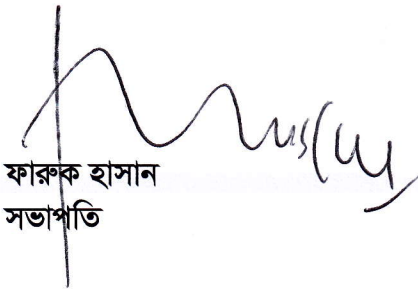 ফারুক হাসান
সভাপতি